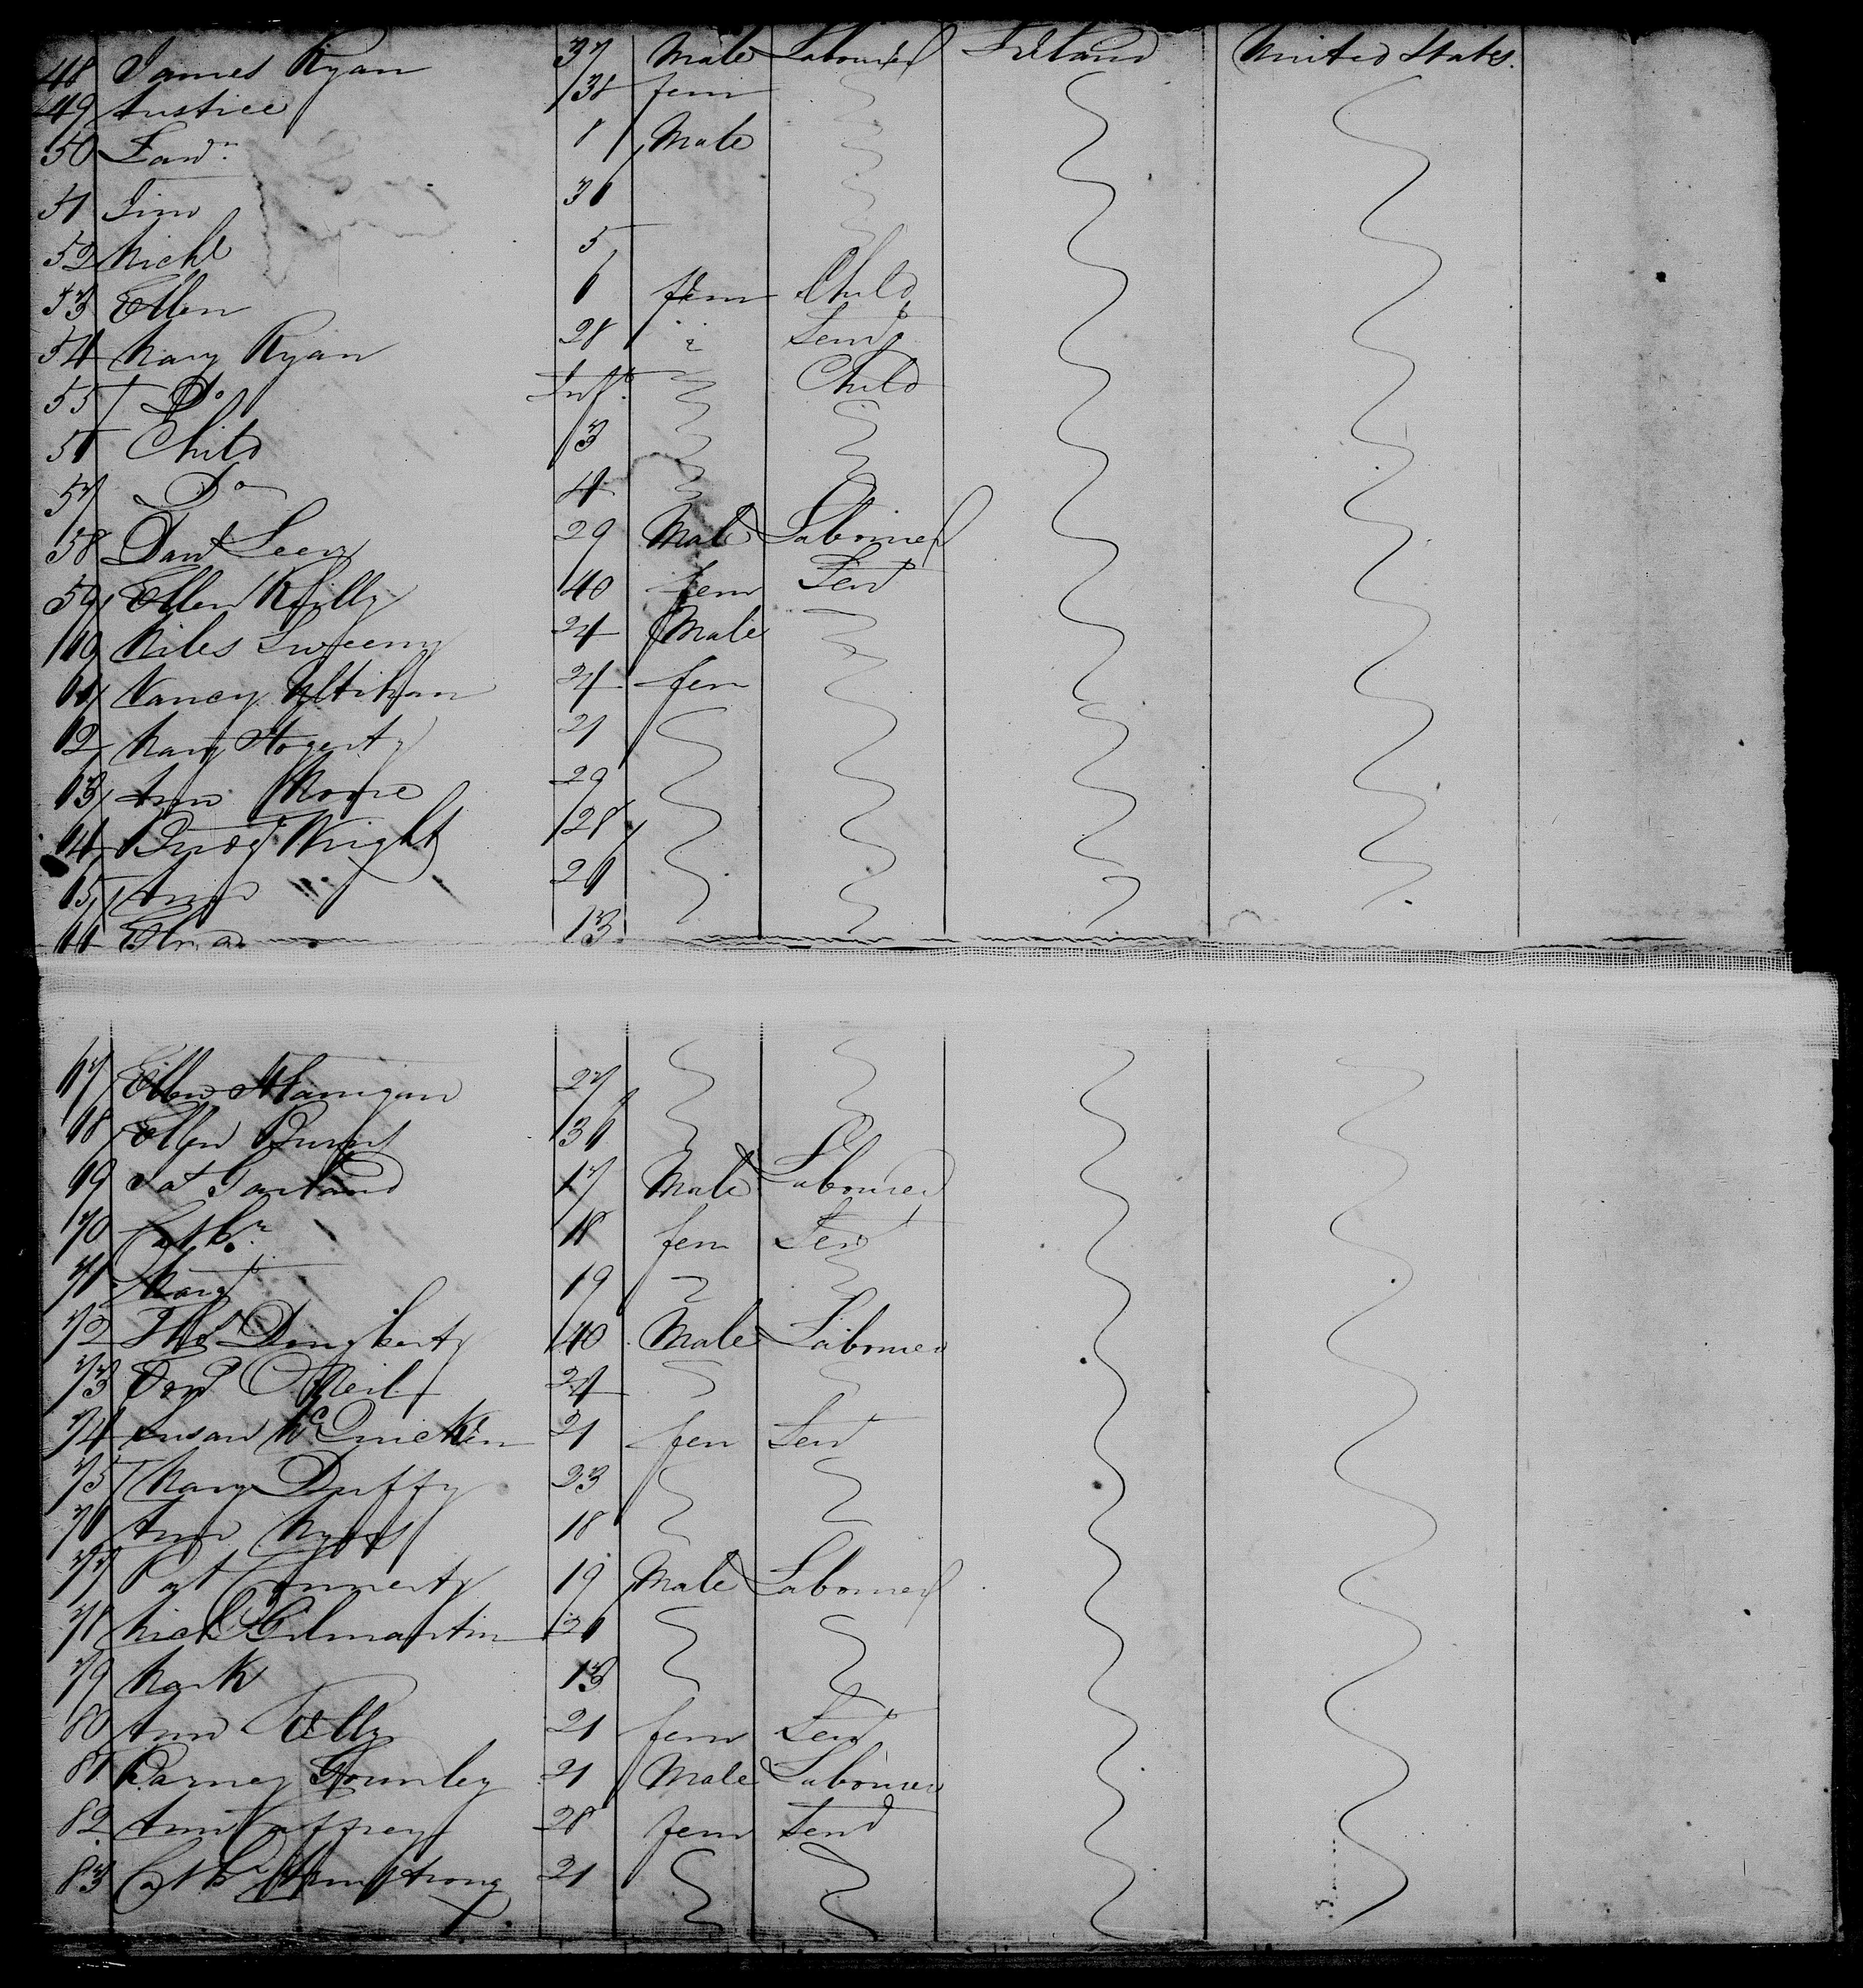 48 James Ryan 37 Male Labourer Ireland United States.
49 Austice 38 fem
50 Edwd. 8 Male
51 Jim 36
52 Michl 5
53 Ellen 6 fem Child
54 Mary Ryan 28 " Servt
55 Do Inft. Child
56 Child 3
57 Do 4
58 Danl Leery 29 Male Labourer
59 Ellen Reilly 40 fem Servt
60 Miles Sweeny 24 Male
61 Nancy 24 fem
62 Mary Hogerty 21
63 Ann Moore 29
64 Bridgt Wright 28
65 Ann 26
66 13
67 Ellen Flanigan 27
68 Ellen 36
69 Pat Garland 17 Male Labourer
70 Cathr. 18 fem Servt
71 Margt 19
72 Thos Dougherty 40 Male Labourer
73 O'Neil 24
74 Susan McQuicken 21 fem Servt
75 Mary Duffy 23
76 Ann Myers 18
77 Pat Connerty 19 Male Labourer
78 Michl Gilmartin 26
79 Mark 13
80 Ann Kelly 21 fem Servt
81 Barney Gormley 21 Male Labourer
82 Ann Caffrey 28 fem Servt
83 Cathr Armstrong 21